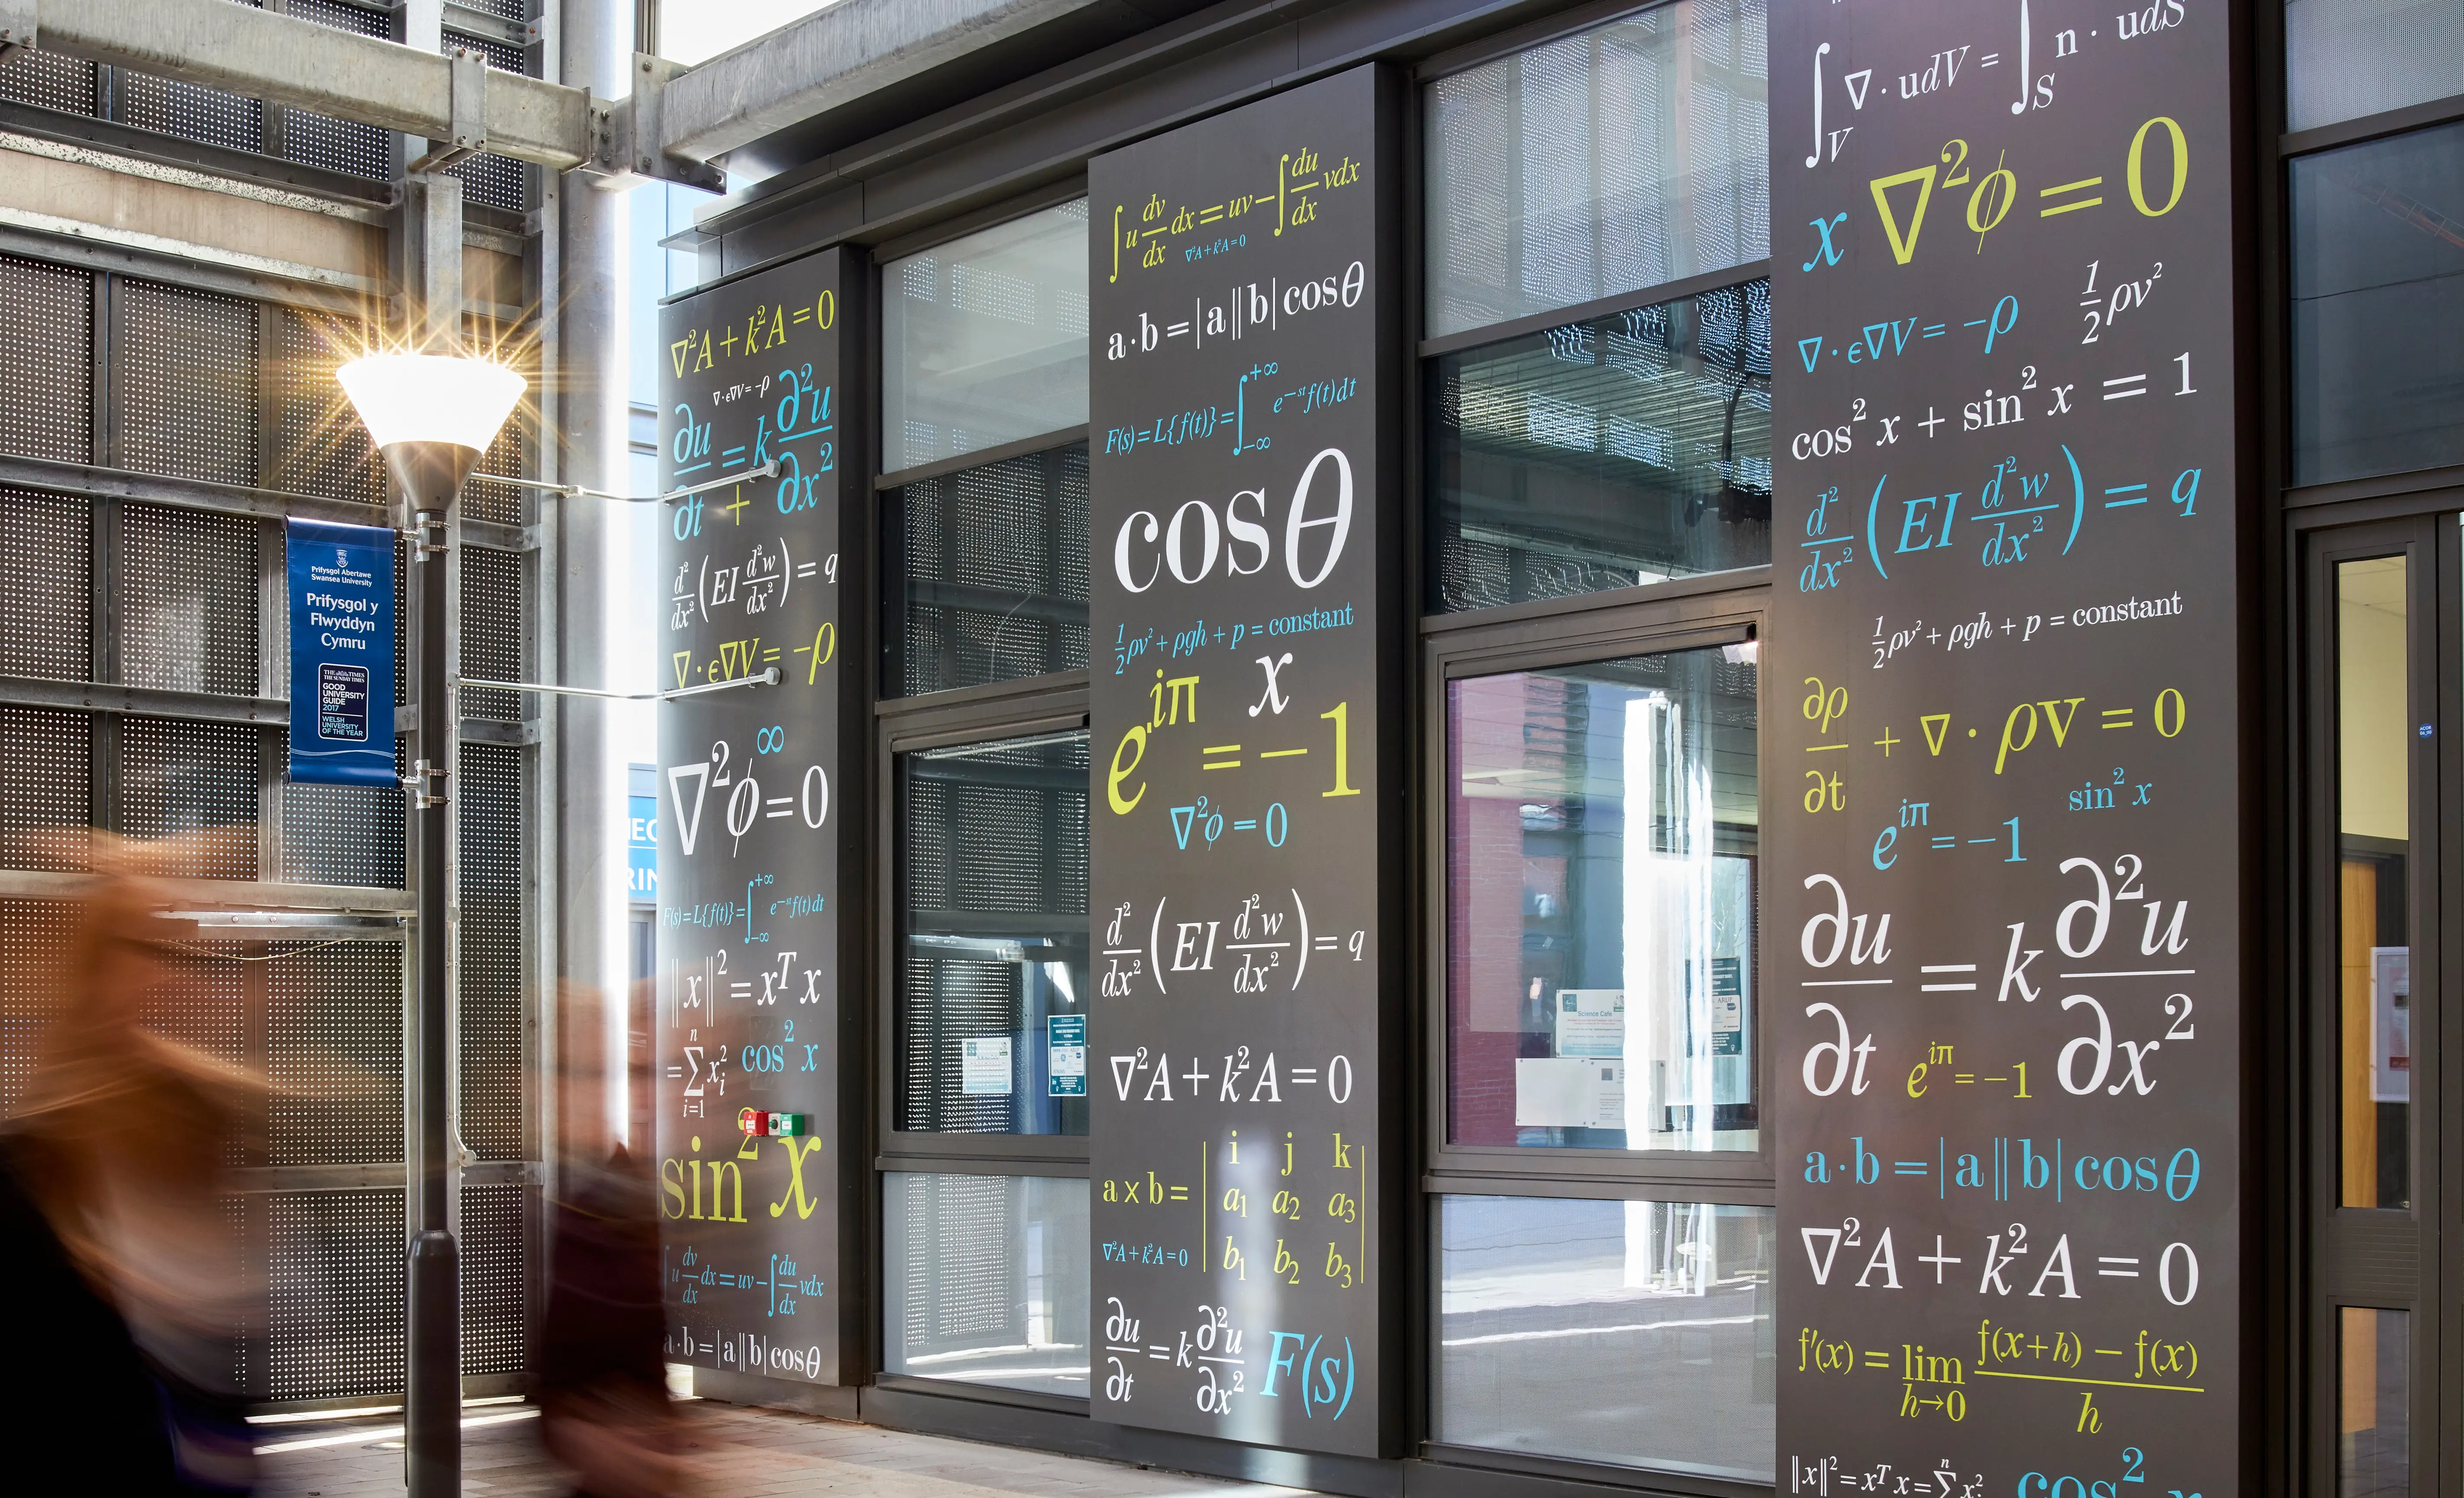 Prifysgol Abertawe
Swansea University
Prifysgol y
Flwyddyn
Cymru
THE TIMES
THE SUNDAY TIMES
GOOD
UNIVERSITY
GUIDE
2017
WELSH
UNIVERSITY
OF THE YEAR
∇²A + k²A = 0
∇·ϵ∇V = −ρ
∂u/∂t = k ∂²u/∂x²
+
d²/dx² (EI d²w/dx²) = q
∇·ϵ∇V = −ρ
∞
∇²ϕ = 0
F(s) = L{f(t)} = ∫₋∞^+∞ e^−st f(t)dt
‖x‖² = xᵀ x
= ∑ᵢ₌₁ⁿ xᵢ²
cos² x
sin² x
∫u dv/dx dx = uv − ∫ du/dx vdx
a·b = |a||b|cosθ
∫u dv/dx dx = uv − ∫ du/dx vdx
∇²A + k²A = 0
a·b = |a||b|cosθ
F(s) = L{f(t)} = ∫₋∞^+∞ e^−st f(t)dt
cosθ
1/2 ρv² + ρgh + p = constant
x
e^iπ = −1
∇²ϕ = 0
d²/dx² (EI d²w/dx²) = q
∇²A + k²A = 0
a x b = | i j k
a₁ a₂ a₃
b₁ b₂ b₃ |
∇²A + k²A = 0
∂u/∂t = k ∂²u/∂x²
F(s)
Science Cafe
∫_V ∇·udV = ∫_S n·udS
x
∇²ϕ = 0
∇·ϵ∇V = −ρ
1/2 ρv²
cos² x + sin² x = 1
d²/dx² (EI d²w/dx²) = q
1/2 ρv² + ρgh + p = constant
∂ρ/∂t + ∇·ρv = 0
sin² x
e^iπ = −1
∂u/∂t = k ∂²u/∂x²
e^iπ = −1
a·b = |a||b|cosθ
∇²A + k²A = 0
f′(x) = lim h→0 (f(x+h) − f(x))/h
‖x‖² = xᵀ x = ∑ⁿ xᵢ²
cos² x